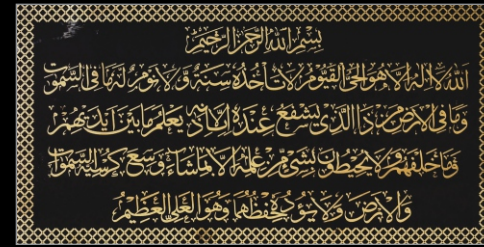 بِسْمِ اللهِ الرَّحْمٰنِ الرَّحِيْمِ
اَللهُ لَا اِلٰهَ اِلَّا هُوَ الْحَيُّ الْقَيُّوْمُ لَا تَأْخُذُهٗ سِنَةٌ وَّلَا نَوْمٌ لَهٗ مَا فِي السَّمٰوٰتِ
وَمَا فِي الْاَرْضِ مَنْ ذَا الَّذِيْ يَشْفَعُ عِنْدَهٗ اِلَّا بِاِذْنِهٖ يَعْلَمُ مَا بَيْنَ اَيْدِيْهِمْ
وَمَا خَلْفَهُمْ وَلَا يُحِيْطُوْنَ بِشَيْءٍ مِّنْ عِلْمِهٖ اِلَّا بِمَا شَاءَ وَسِعَ كُرْسِيُّهُ السَّمٰوٰتِ
وَالْاَرْضَ وَلَا يَئُوْدُهٗ حِفْظُهُمَا وَهُوَ الْعَلِيُّ الْعَظِيْمُ